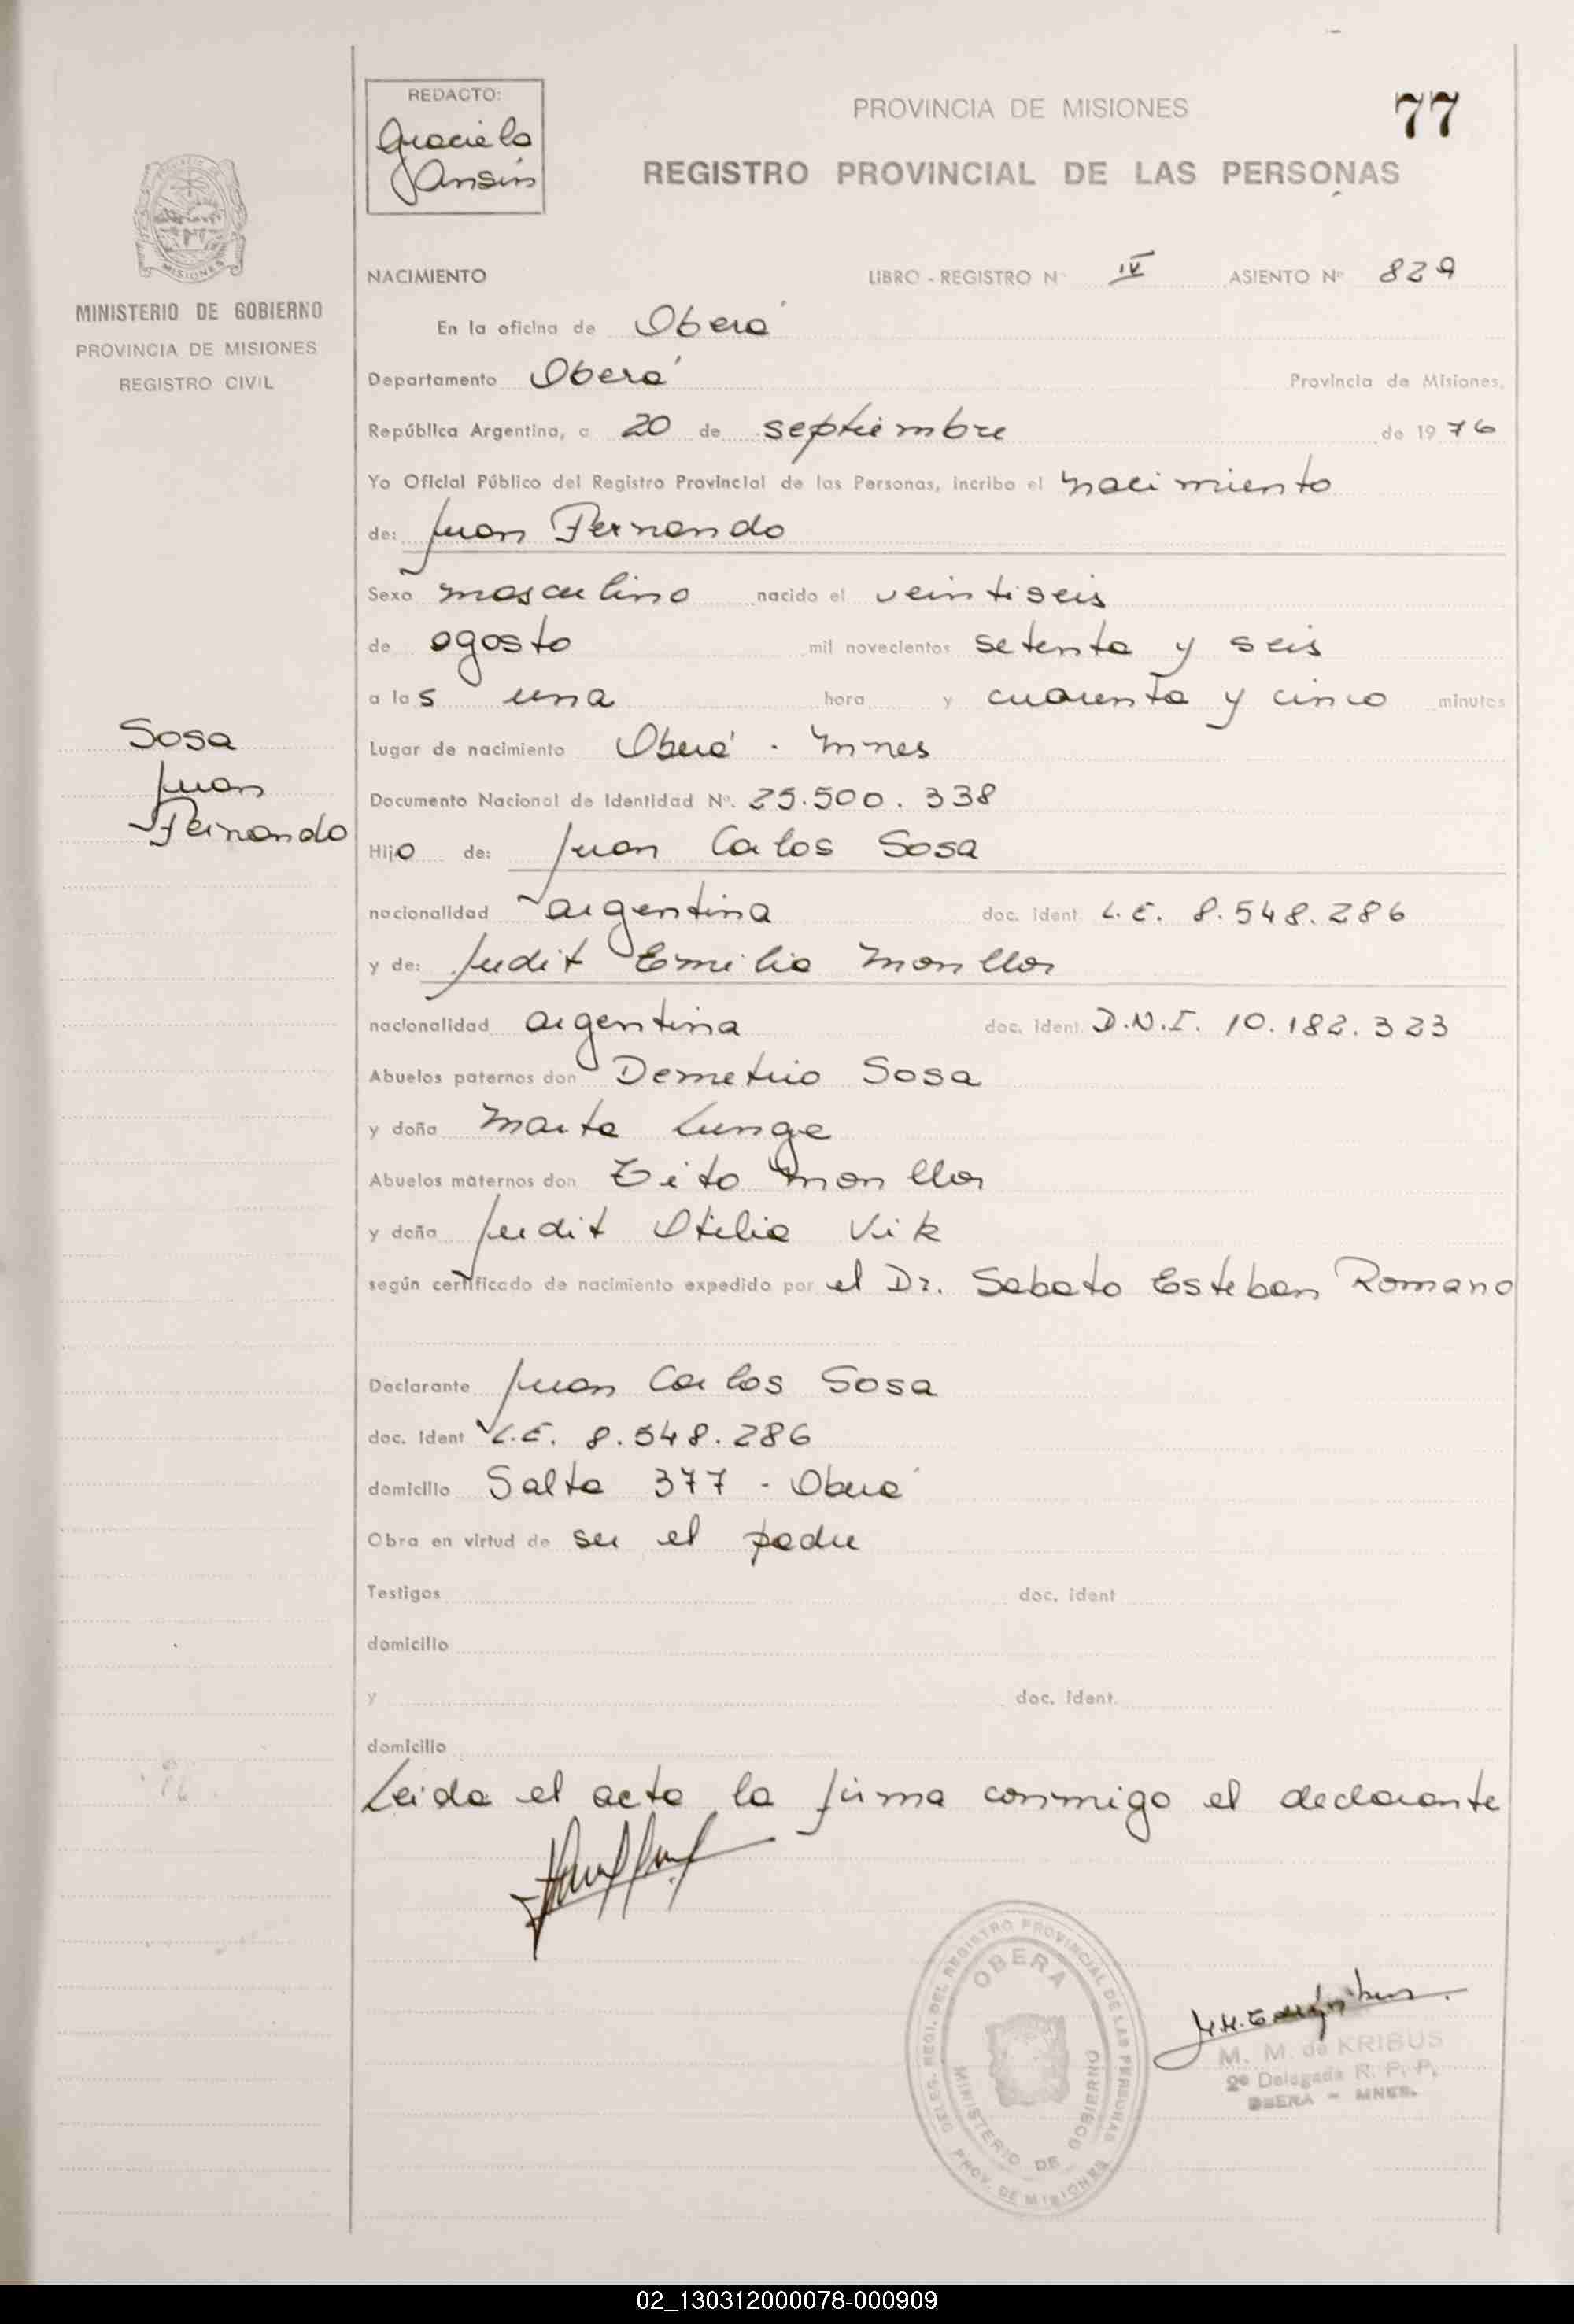 REDACTO:
Graciela
Ansin
PROVINCIA DE MISIONES
77
REGISTRO PROVINCIAL DE LAS PERSONAS
MISIONES
MINISTERIO DE GOBIERNO
PROVINCIA DE MISIONES
REGISTRO CIVIL
NACIMIENTO LIBRO - REGISTRO Nº IV ASIENTO Nº 829
En la oficina de Oberá
Departamento Oberá Provincia de Misiones,
República Argentina, a 20 de septiembre de 1976
Yo Oficial Público del Registro Provincial de las Personas, incribo el nacimiento
de: Juan Fernando
Sexo masculino nacido el veintiseis
de agosto mil novecientos setenta y seis
a las una hora y cuarenta y cinco minutos
Sosa
Juan
Fernando
Lugar de nacimiento Oberá - Mnes
Documento Nacional de Identidad Nº. 25.500.338
Hijo de: Juan Carlos Sosa
nacionalidad argentina doc. ident. L.E. 8.548.286
y de: Judit Emilia Monllor
nacionalidad argentina doc. ident. D.N.I. 10.182.323
Abuelos paternos don Demetrio Sosa
y doña Marta Lunge
Abuelos maternos don Tito Monllor
y doña Judit Otilia Vik
según certificado de nacimiento expedido por el Dr. Sabato Esteban Romano
Declarante Juan Carlos Sosa
doc. ident L.E. 8.548.286
domicilio Salta 377 - Oberá
Obra en virtud de ser el padre
Testigos doc. ident
domicilio
y doc. ident.
domicilio
Leida el acta la firma conmigo el declarante
DELEG. REGI. DEL REGISTRO PROVINCIAL DE LAS PERSONAS
OBERA
MINISTERIO DE GOBIERNO
PROV. DE MISIONES
M. M. de KRIBUS
2ª Delegada R. P. P.
OBERA - MNES.
02_130312000078-000909